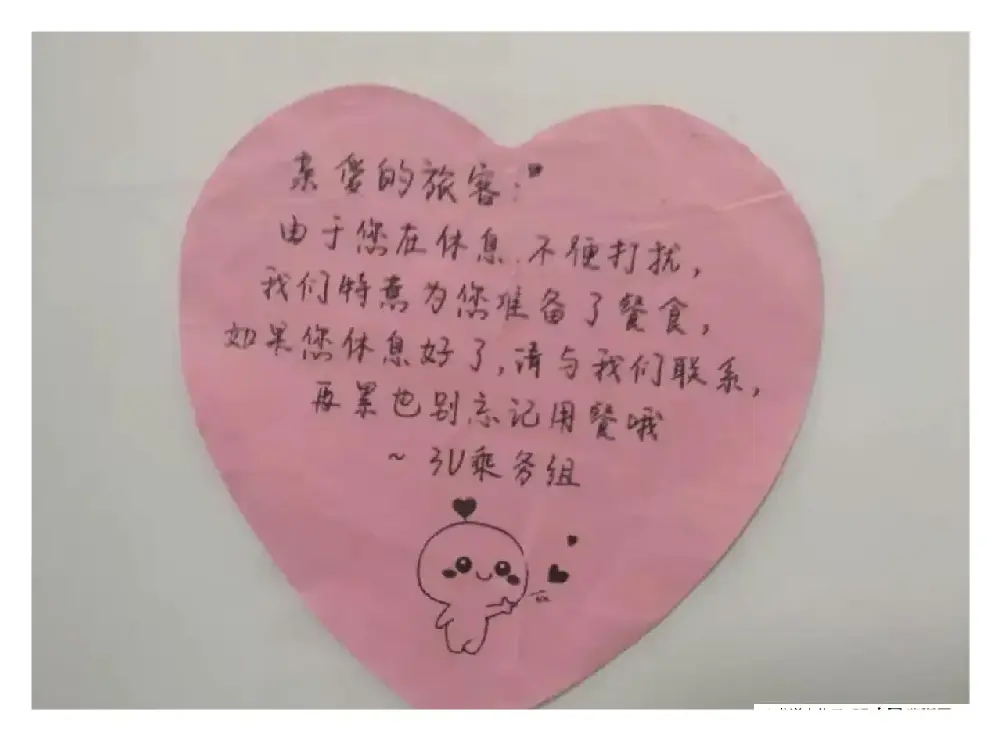 亲爱的旅客:
由于您在休息.不便打扰,
我们特意为您准备了餐食,
如果您休息好了,请与我们联系,
再累也别忘记用餐哦
~3U乘务组